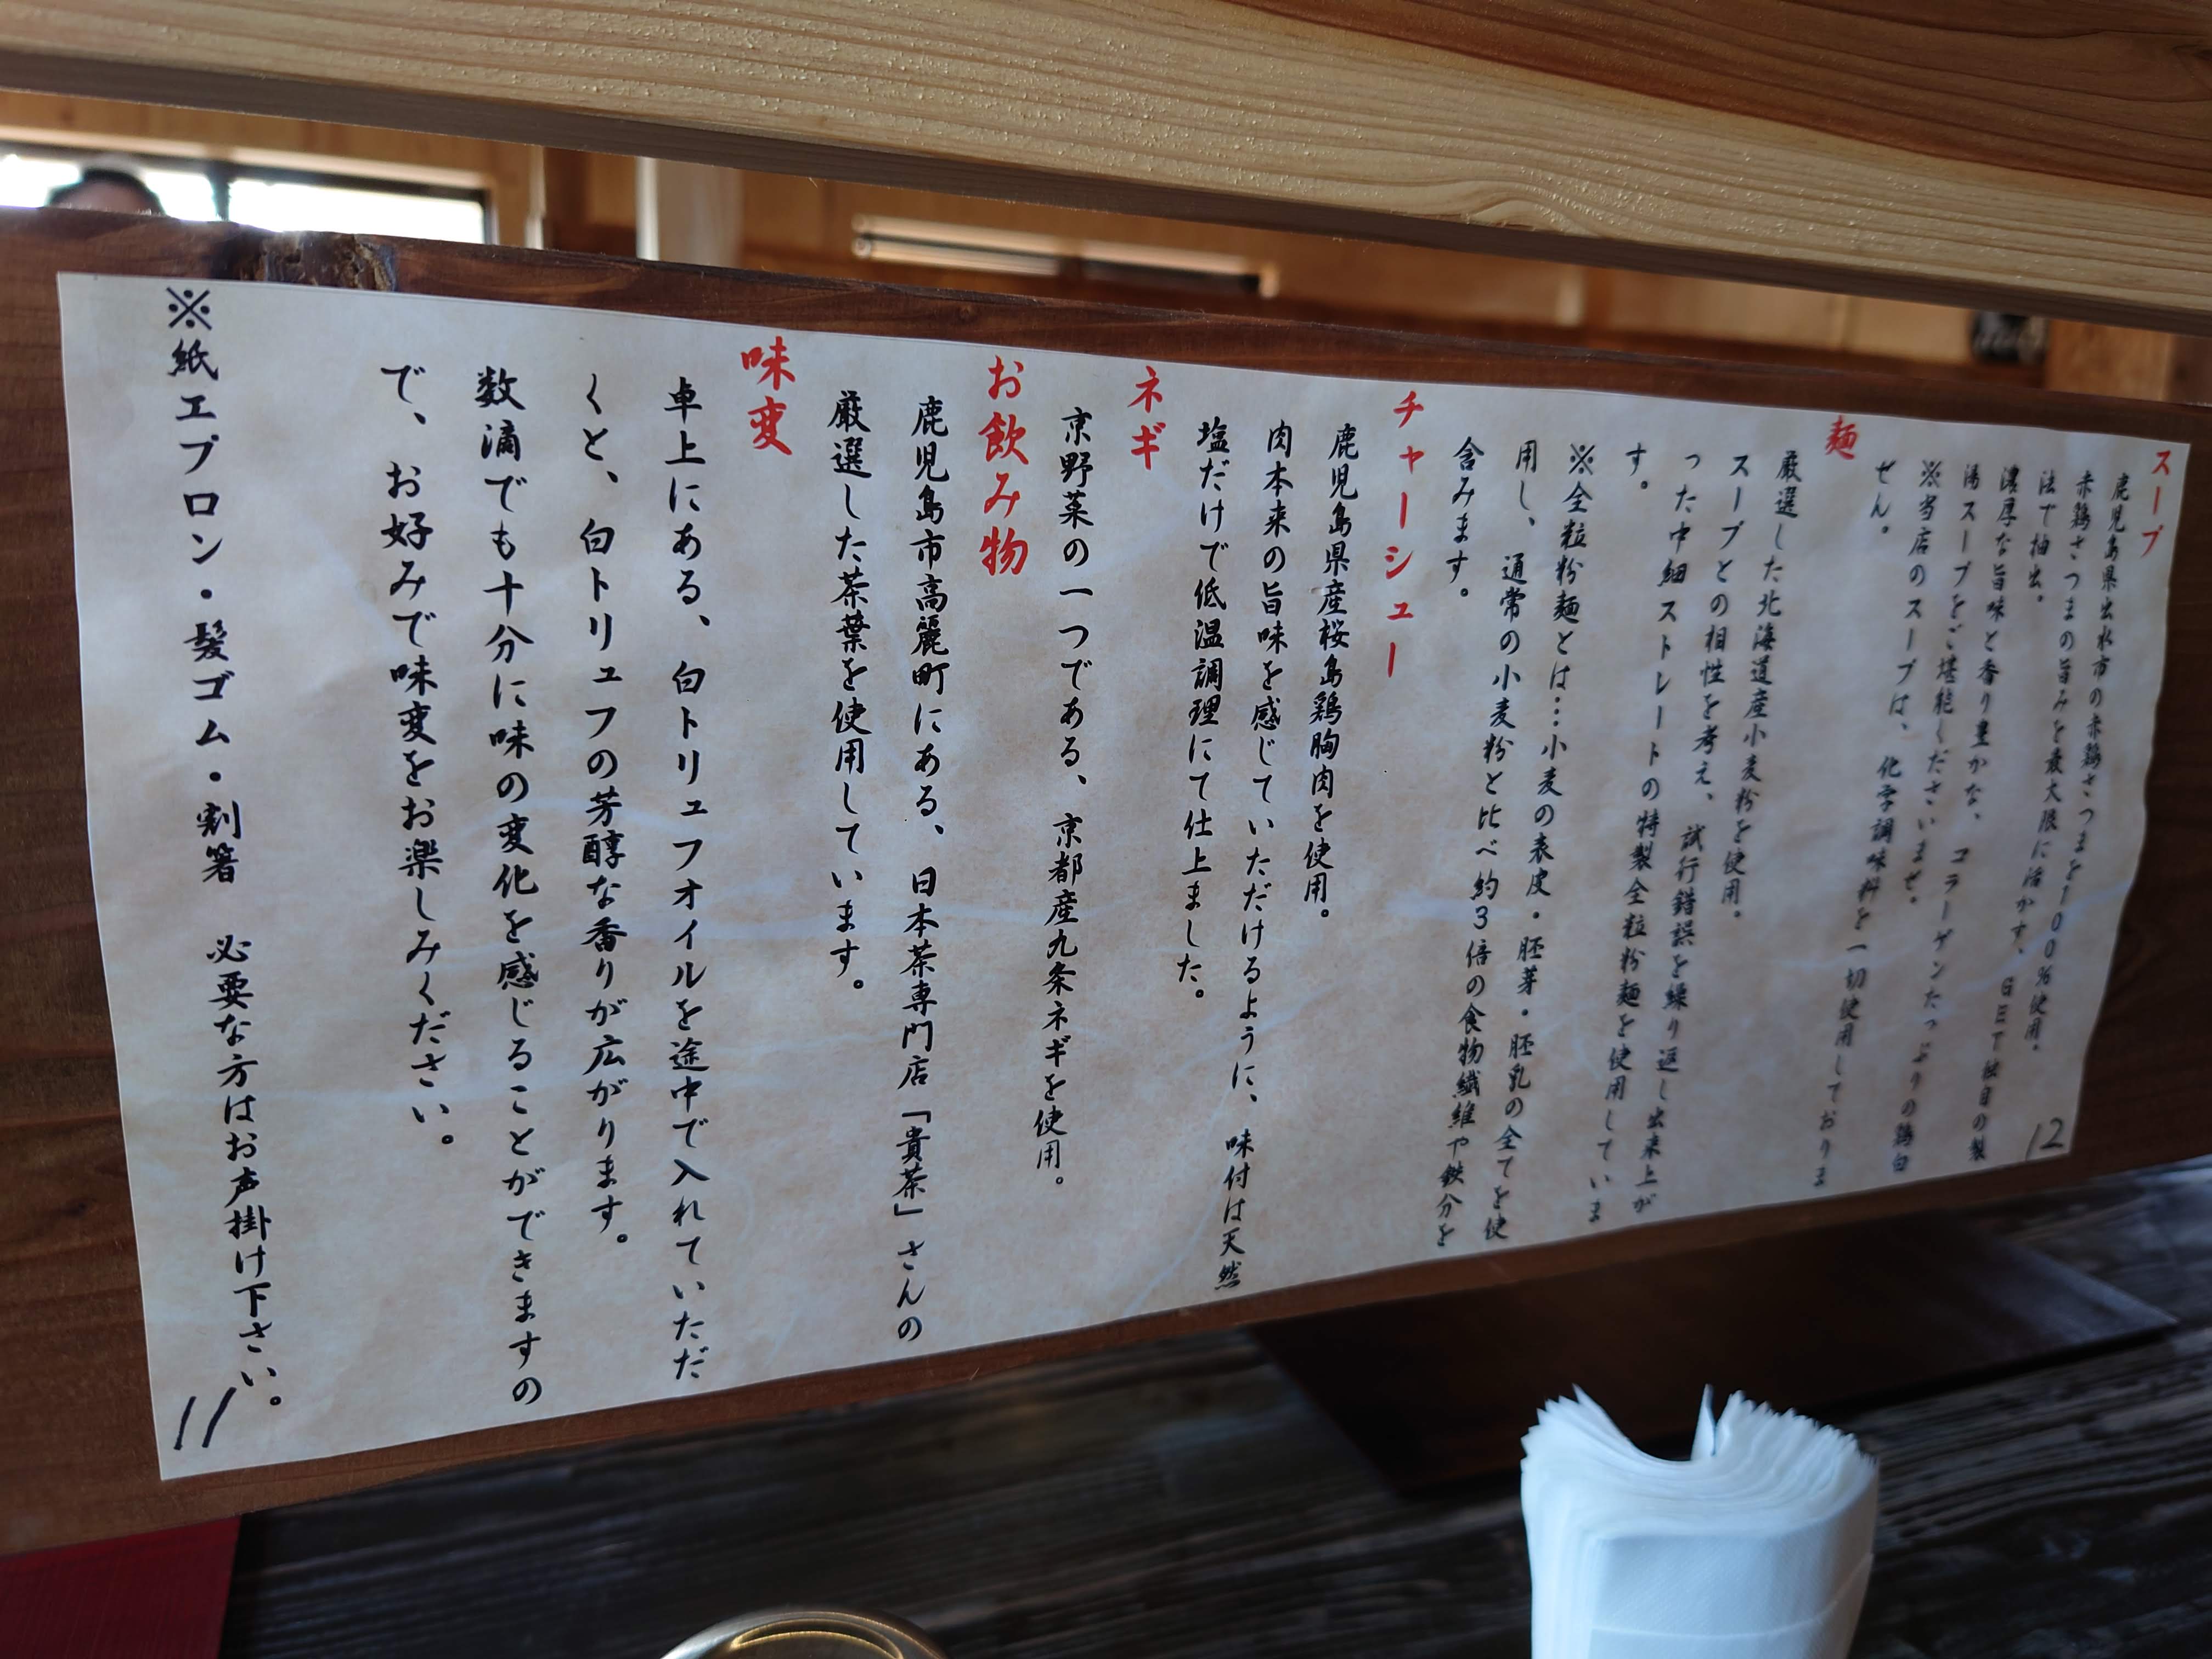 スープ
鹿児島県出水市の赤鶏さつまを100%使用。
赤鶏さつまの旨みを最大限に活かす、GET独自の製
法で抽出。
濃厚な旨味と香り豊かな、コラーゲンたっぷりの鶏白
湯スープをご堪能くださいませ。
※当店のスープは、化学調味料を一切使用しておりま
せん。
麺
厳選した北海道産小麦粉を使用。
スープとの相性を考え、試行錯誤を繰り返し出来上が
った中細ストレートの特製全粒粉麺を使用していま
す。
※全粒粉麺とは…小麦の表皮・胚芽・胚乳の全てを使
用し、通常の小麦粉と比べ約3倍の食物繊維や鉄分を
含みます。
チャーシュー
鹿児島県産桜島鶏胸肉を使用。
肉本来の旨味を感じていただけるように、味付は天然
塩だけで低温調理にて仕上ました。
ネギ
京野菜の一つである、京都産九条ネギを使用。
お飲み物
鹿児島市高麗町にある、日本茶専門店「貴茶」さんの
厳選した茶葉を使用しています。
味変
卓上にある、白トリュフオイルを途中で入れていただ
くと、白トリュフの芳醇な香りが広がります。
数滴でも十分に味の変化を感じることができますの
で、お好みで味変をお楽しみください。
※紙エプロン・髪ゴム・割箸 必要な方はお声掛け下さい。
12
11